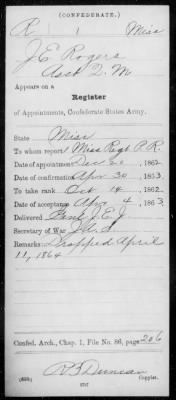 (CONFEDERATE.)
R 1 Miss
J E Rogers
Asst Q. M
Appears on a
Register
of Appointments, Confederate States Army.
State Miss
To whom report Miss Regt P.R.
Date of appointment Dec 20, 1862
Date of confirmation Apr 30, 1863.
To take rank Oct 14, 1862
Date of acceptance Apr 4, 1863
Delivered Genl J. E. J.
Secretary of War J. A. S
Remarks Dropped April
11, 1864
Confed. Arch., Chap. 1, File No. 86, page 206
R B Duncan
Copyist.